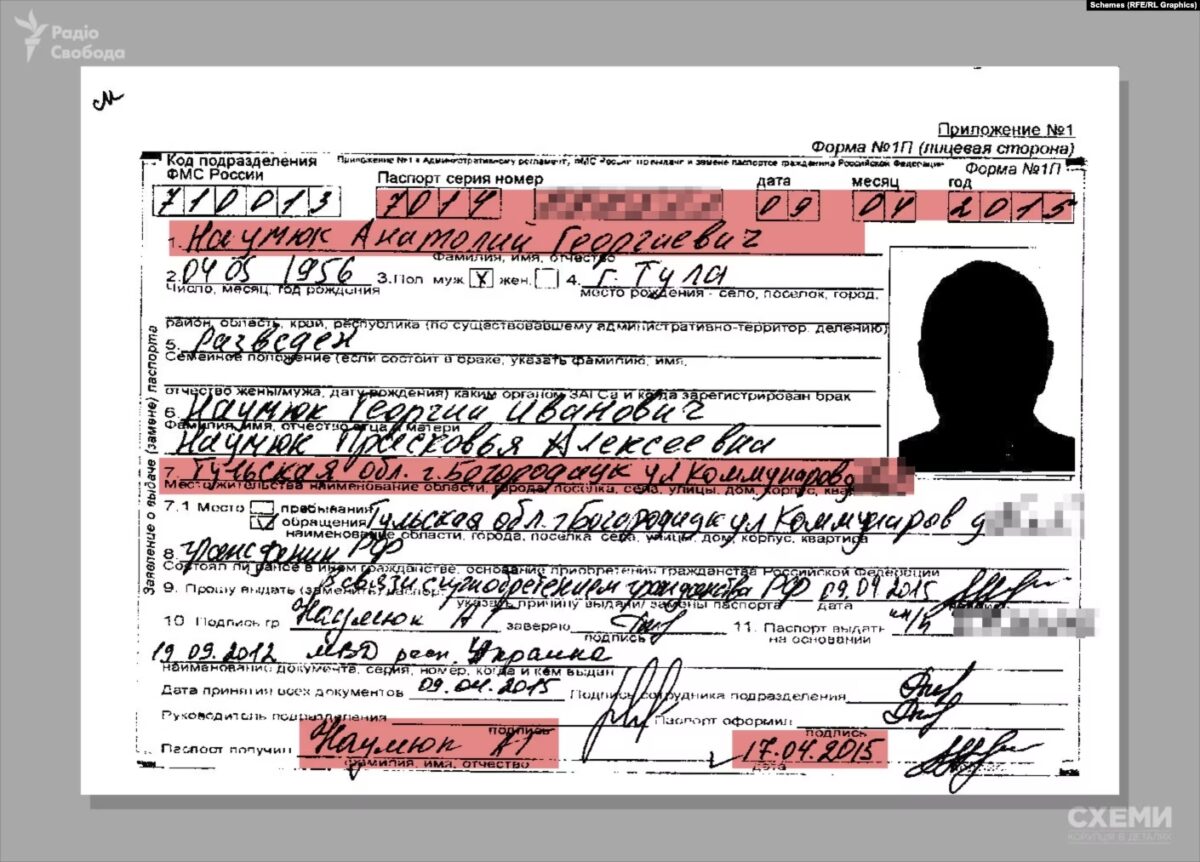 Schemes (RFE/RL Graphics)
Радіо
Свобода
Приложение №1
Форма №1П (лицевая сторона)
Код подразделения
ФМС России
Форма №1П
Паспорт серия номер
дата
месяц
год
710013
7014
09
04
2015
1. Наумюк Анатолий Георгиевич
фамилия, имя, отчество
2. 04 05 1956 3. Пол муж X жен. 4. г. Тула
число, месяц, год рождения
место рождения - село, поселок, город,
район, область, край, республика (по существовавшему административно-территор. делению)
5. Разведен
Семейное положение (если состоит в браке, указать фамилию, имя,
отчество жены/мужа, дату рождения) каким органом ЗАГСа и когда зарегистрирован брак
6. Наумюк Георгий Иванович
Фамилия, имя, отчество отца и матери
Наумюк Прасковья Алексеевна
7. Тульская обл. г. Богородицк ул Коммунаров
Место жительства наименование области, города, поселка, села, улицы, дом, корпус,
7.1 Место пребывания
обращения Тульская обл. г Богородицк ул Коммунаров д
наименование области, города, поселка села, улицы, дом, корпус, квартира
8. гражданин РФ
Состоял ли ранее в ином гражданстве, основание приобретения гражданства Российской Федерации
9. Прошу выдать (заменить) паспорт В связи с приобретением гражданства РФ 09.04.2015
указать причину выдачи/замены паспорта
дата
10 Подпись гр Наумюк А Г заверяю
подпись
11. Паспорт выдать
на основании
19.09.2012 МВД респ. Украина
наименование документа, серия, номер, когда и кем выдан
Дата принятия всех документов 09.04.2015 Подпись сотрудника подразделения
Руководитель подразделения
подпись
Паспорт оформил
подпись
Паспорт получил Наумюк АГ 17.04.2015
фамилия, имя, отчество
дата
Заявление о выдаче (замене) паспорта
СХЕМИ
КОРУПЦІЯ В ДЕТАЛЯХ